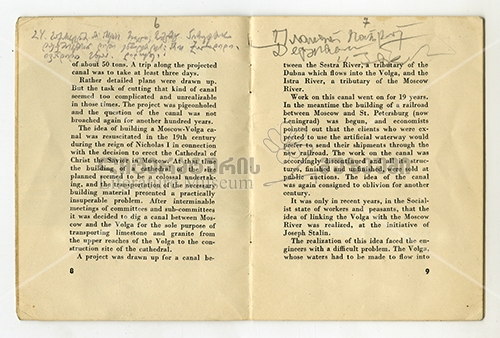 6
of about 50 tons. A trip along the projected
canal was to take at least three days.
Rather detailed plans were drawn up.
But the task of cutting that kind of canal
seemed too complicated and unrealizable
in those times. The project was pigeonholed
and the question of the canal was not
broached again for another hundred years.
The idea of building a Moscow-Volga ca-
nal was resuscitated in the 19th century
during the reign of Nicholas I in connection
with the decision to erect the Cathedral of
Christ the
the building
planned proved to be a colossal undertak-
ing, and the transportation of the necessary
building material presented a practically
insuperable problem. After interminable
meetings of committees and sub-committees
it was decided to dig a canal between Mos-
cow and the Volga for the sole purpose of
transporting limestone and granite from
the upper reaches of the Volga to the con-
struction site of the cathedral.
A project was drawn up for a canal be-
8
7
tween the Sestra River, a tributary of the
Dubna which flows into the Volga, and the
Istra River, a tributary of the Moscow
River.
Work on this canal went on for 19 years.
In the meantime the building of a railroad
between Moscow and St. Petersburg (now
Leningrad) was begun, and economists
pointed out that the clients who were ex-
pected to use the artificial waterway would
prefer to send their shipments through the
new railroad. The work on the canal was
accordingly
tures, sold at
public auction. The idea of the canal
was again consigned to oblivion for another
century.
It was only in recent years, in the Social-
ist state of workers and peasants, that the
idea of linking the Volga with the Moscow
River was realized, at the initiative of
Joseph Stalin.
The realization of this idea faced the en-
gineers with a difficult problem. The Volga,
whose waters had to be made to flow into
9